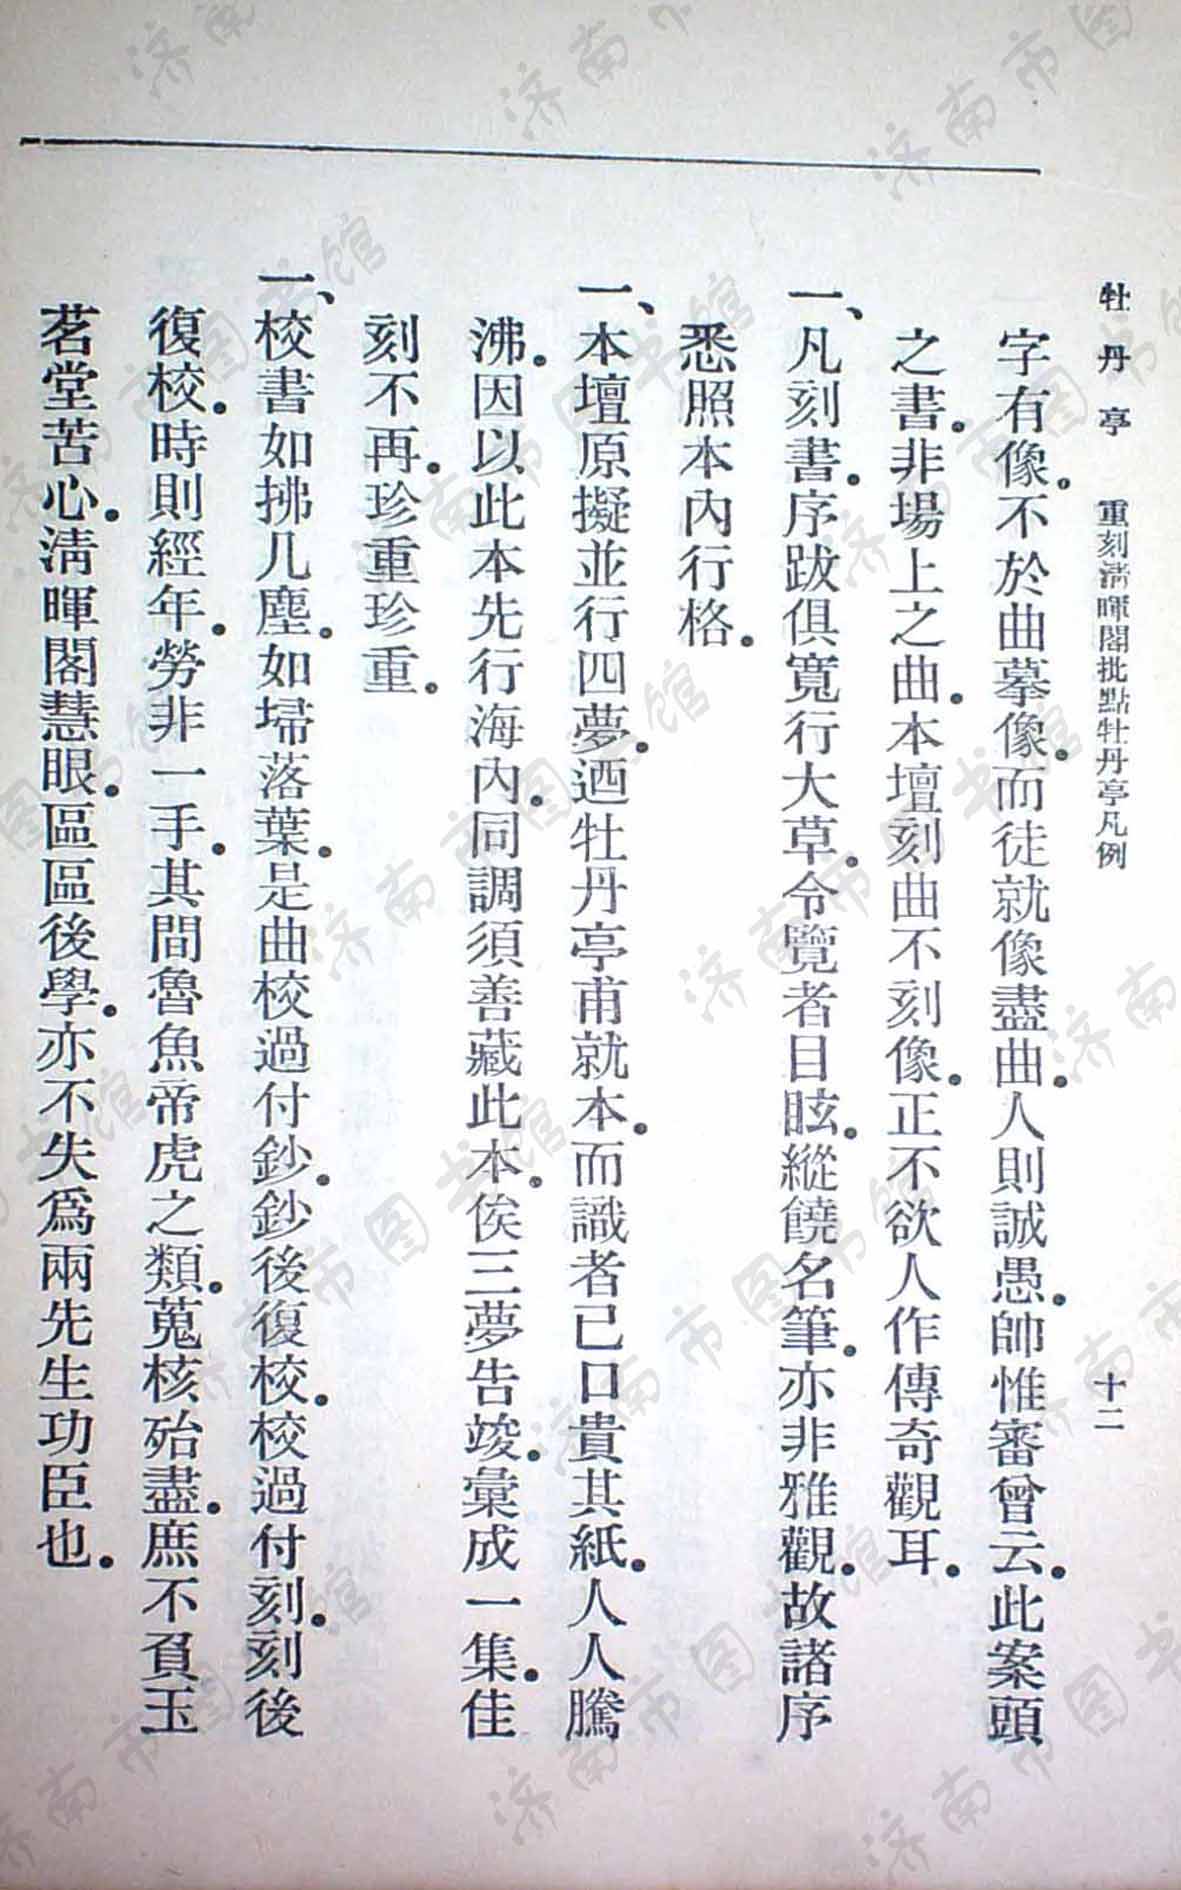 牡丹亭 重刻清暉閣批點牡丹亭凡例 十二
字有像。不於曲摹像。而徒就像盡曲。人則誠愚。帥惟審曾云。此案頭
之書。非場上之曲。本壇刻曲不刻像。正不欲人作傳奇觀耳。
一、凡刻書。序跋俱寬行大草。令覽者目眩。縱饒名筆。亦非雅觀。故諸序
悉照本內行格。
一、本壇原擬並行四夢。迺牡丹亭甫就本。而識者已口貴其紙。人人騰
沸。因以此本先行海內。同調須善藏此本。俟三夢告竣。彙成一集。佳
刻不再。珍重珍重。
一、校書如拂几塵。如埽落葉。是曲校過付鈔。鈔後復校。校過付刻。刻後
復校。時則經年。勞非一手。其問魯魚帝虎之類。蒐核殆盡。庶不負玉
茗堂苦心。清暉閣慧眼。區區後學。亦不失爲兩先生功臣也。
济南市图书馆